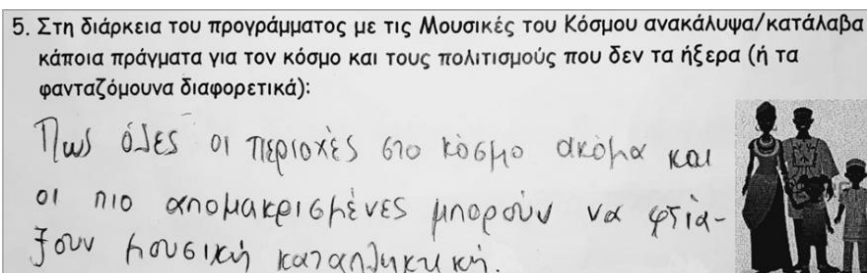 5. Στη διάρκεια του προγράμματος με τις Μουσικές του Κόσμου ανακάλυψα/κατάλαβα
κάποια πράγματα για τον κόσμο και τους πολιτισμούς που δεν τα ήξερα (ή τα
φανταζόμουνα διαφορετικά):
Πως όλες οι περιοχές στο κόσμο ακόμα και
οι πιο απομακρισμένες μπορούν να φτιά-
ξουν μουσική καταπληκτική.